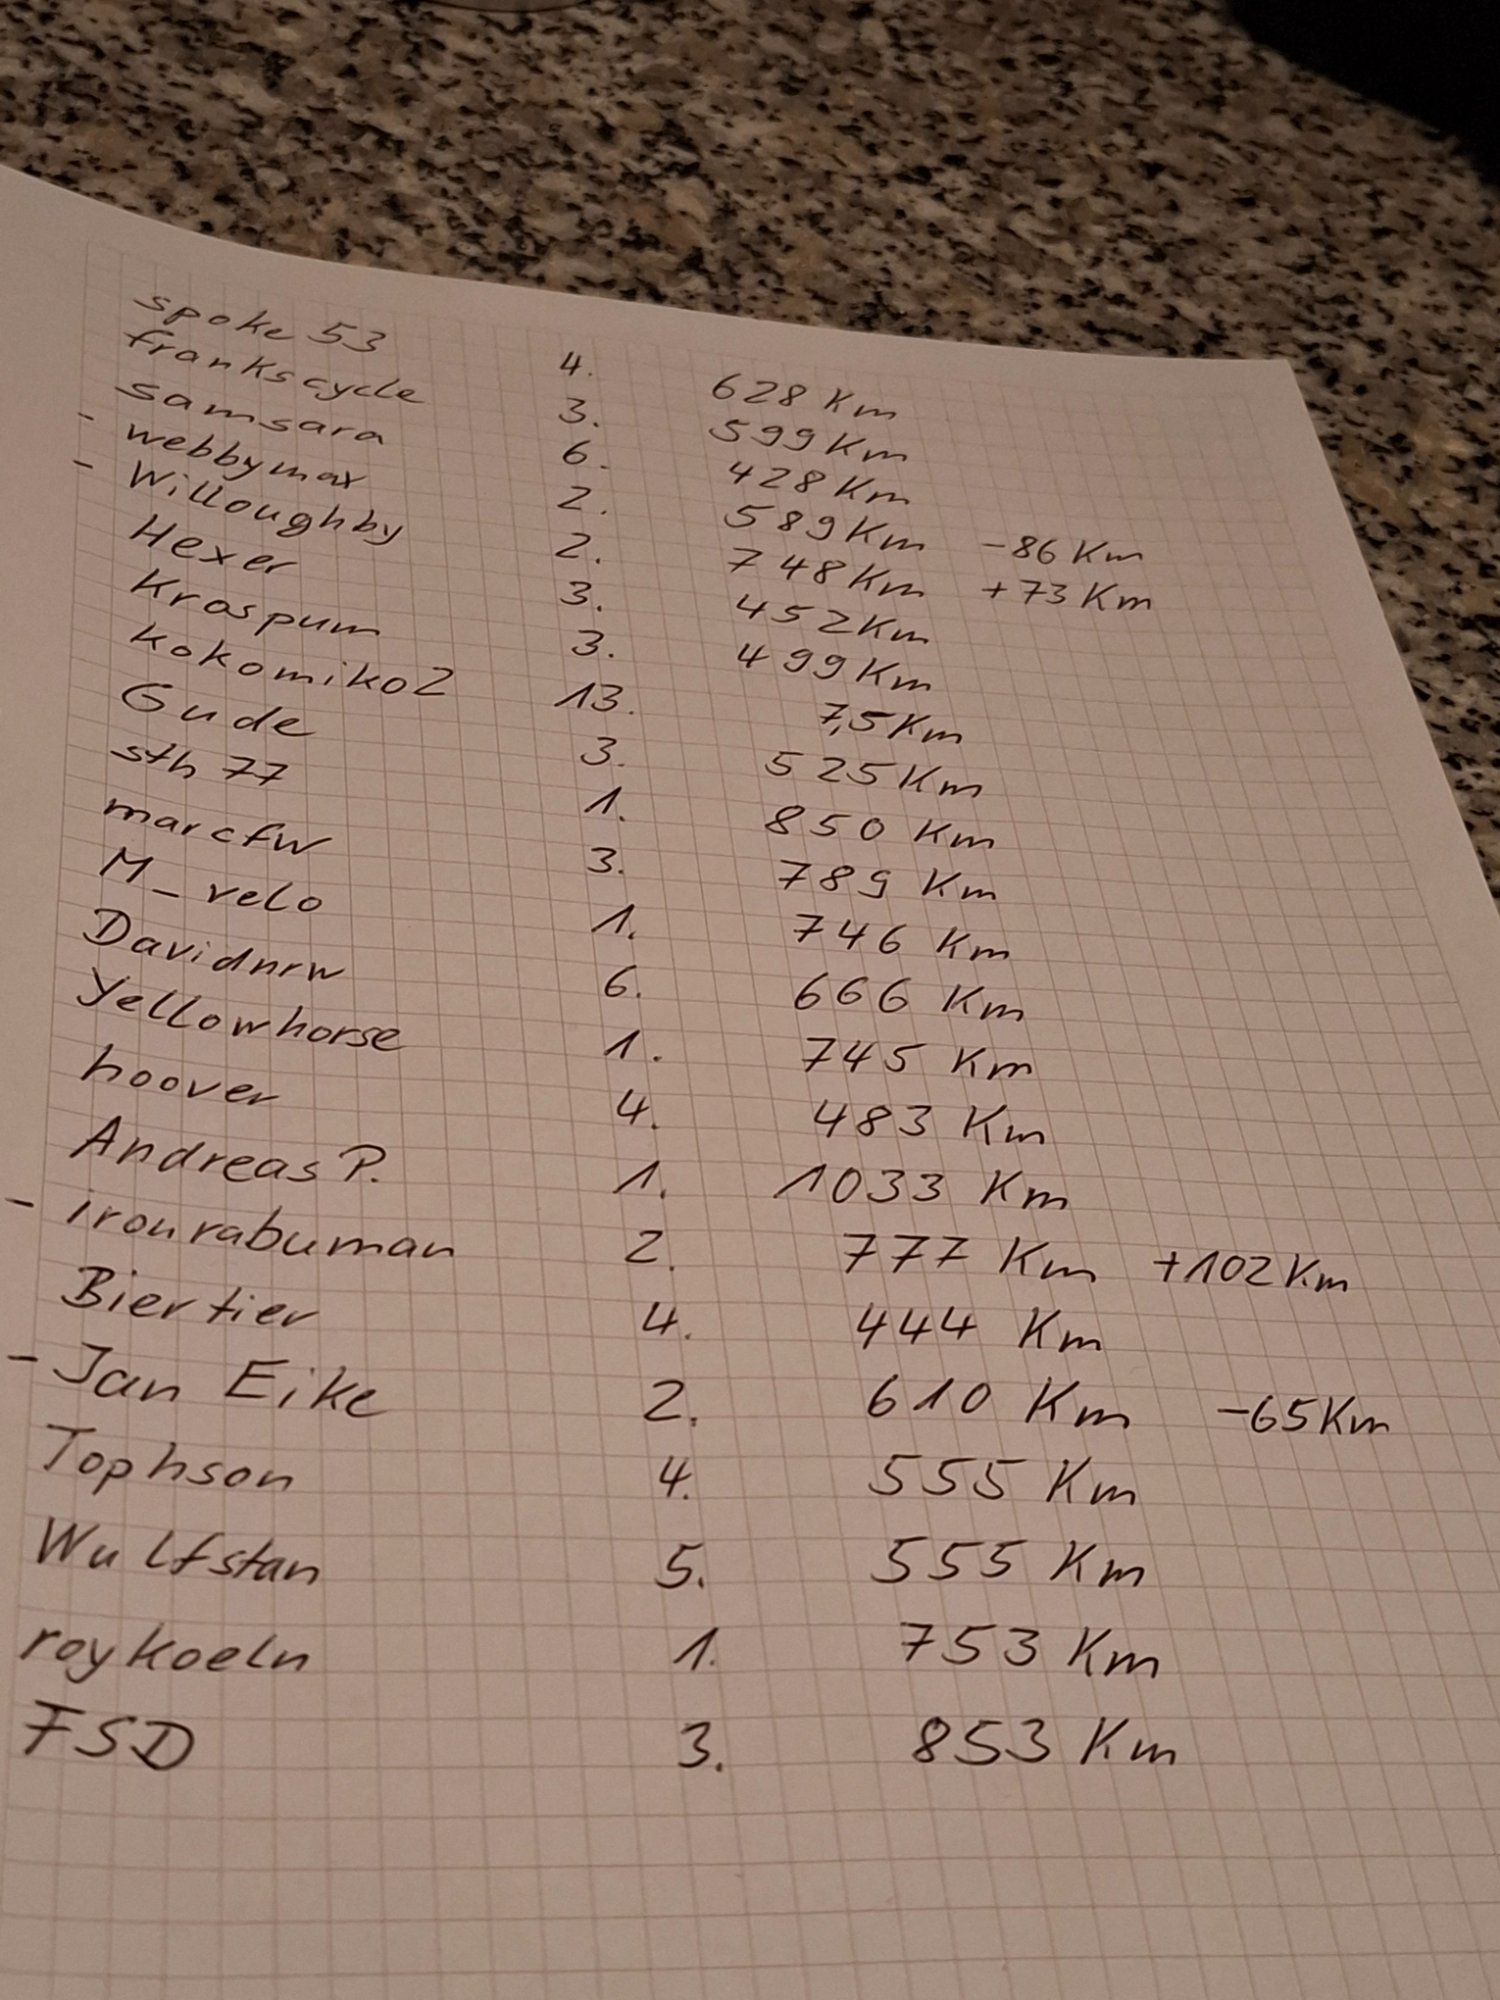 spoke 53 4. 628 Km
frankscycle 3. 599 Km
samsara 6. 428 Km
- webbymax 2. 589 Km -86 Km
- Willoughby 2. 748 Km +73 Km
Hexer 3. 452 Km
Kraspum 3. 499 Km
kokomiko2 13. 7,5 Km
Gude 3. 525 Km
sth 77 1. 850 Km
marcfw 3. 789 Km
M_velo 1. 746 Km
Davidnrw 6. 666 Km
Yellowhorse 1. 745 Km
hoover 4. 483 Km
Andreas P. 1. 1033 Km
- ironrabuman 2. 777 Km +102 Km
Biertier 4. 444 Km
- Jan Eike 2. 610 Km -65 Km
Tophson 4. 555 Km
Wulfstan 5. 555 Km
roykoeln 1. 753 Km
FSD 3. 853 Km